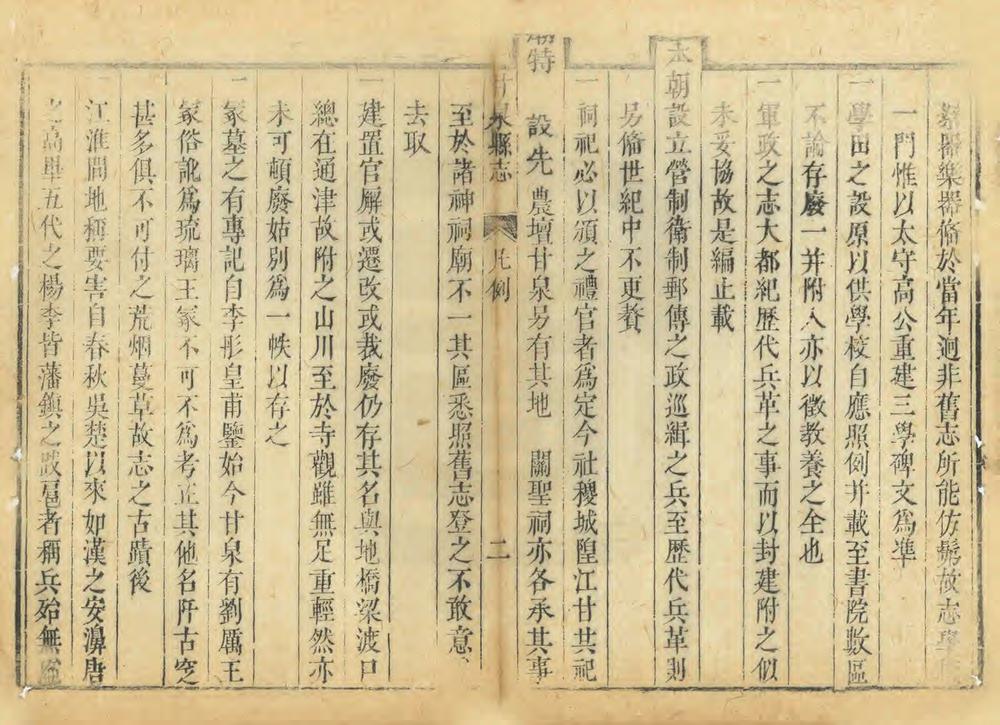 祭器樂器脩於當年迥非舊志所能仿髴故志學校
一門惟以太守高公重建三學碑文爲準
一學田之設原以供學校自應照例并載至書院數區
不論存廢一并附入亦以徵教養之全也
一軍政之志大都紀歷代兵革之事而以封建附之似
未妥協故是編止載
本朝設立營制衛制郵傳之政巡緝之兵至歷代兵革則
另脩世紀中不更贅
一祠祀必以頒之禮官者爲定今社稷城隍江甘共祀
廟特設先農壇甘泉另有其地 關聖祠亦各承其事
甘泉縣志 凡例 二
至於諸神祠廟不一其區悉照舊志登之不敢意
去取
一建置官廨或遷改或裁廢仍存其名與地橋梁渡口
總在通津故附之山川至於寺觀雖無足重輕然亦
未可頓廢姑別爲一帙以存之
一冢墓之有專記自李彤皇甫鑒始今甘泉有劉厲王
冢俗訛爲琉璃王冢不可不爲考正其他名阡古窆
甚多俱不可付之荒烟蔓草故志之古蹟後
一江淮間地稱要害自春秋吳楚以來如漢之安濞唐
之高畢五代之楊李皆藩鎮之跋扈者稱兵殆無虛